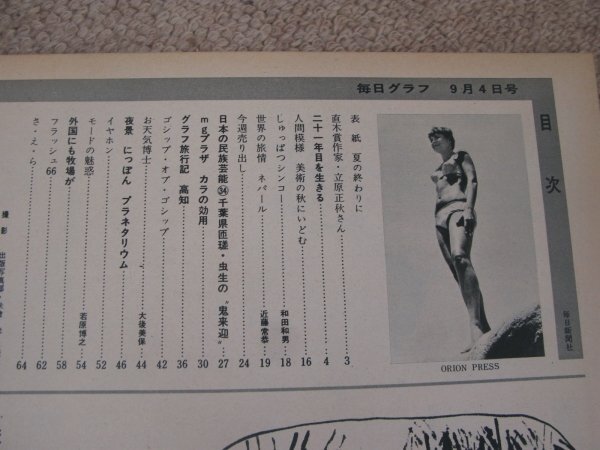 毎日グラフ 9月4日号
目次
毎日新聞社
ORION PRESS
表紙 夏の終わりに
直木賞作家・立原正秋さん 3
二十一年目を生きる 4
人間模様 美術の秋にいどむ 16
じゅっぱつシンコー 和田和男 18
世界の旅情 ネパール 近藤常恭 19
今週売り出し 24
日本の民族芸能㉞千葉県匝瑳・虫生の“鬼来迎” 27
mgプラザ カラの効用 30
グラフ旅行記 高知 36
ゴシップ・オブ・ゴシップ 42
お天気博士 大後美保 44
夜景 にっぽん プラネタリウム 46
イヤホン 52
モードの魅惑 若原博之 54
外国にも牧場が 58
フラッシュ66 62
さ・え・ら 64
撮影